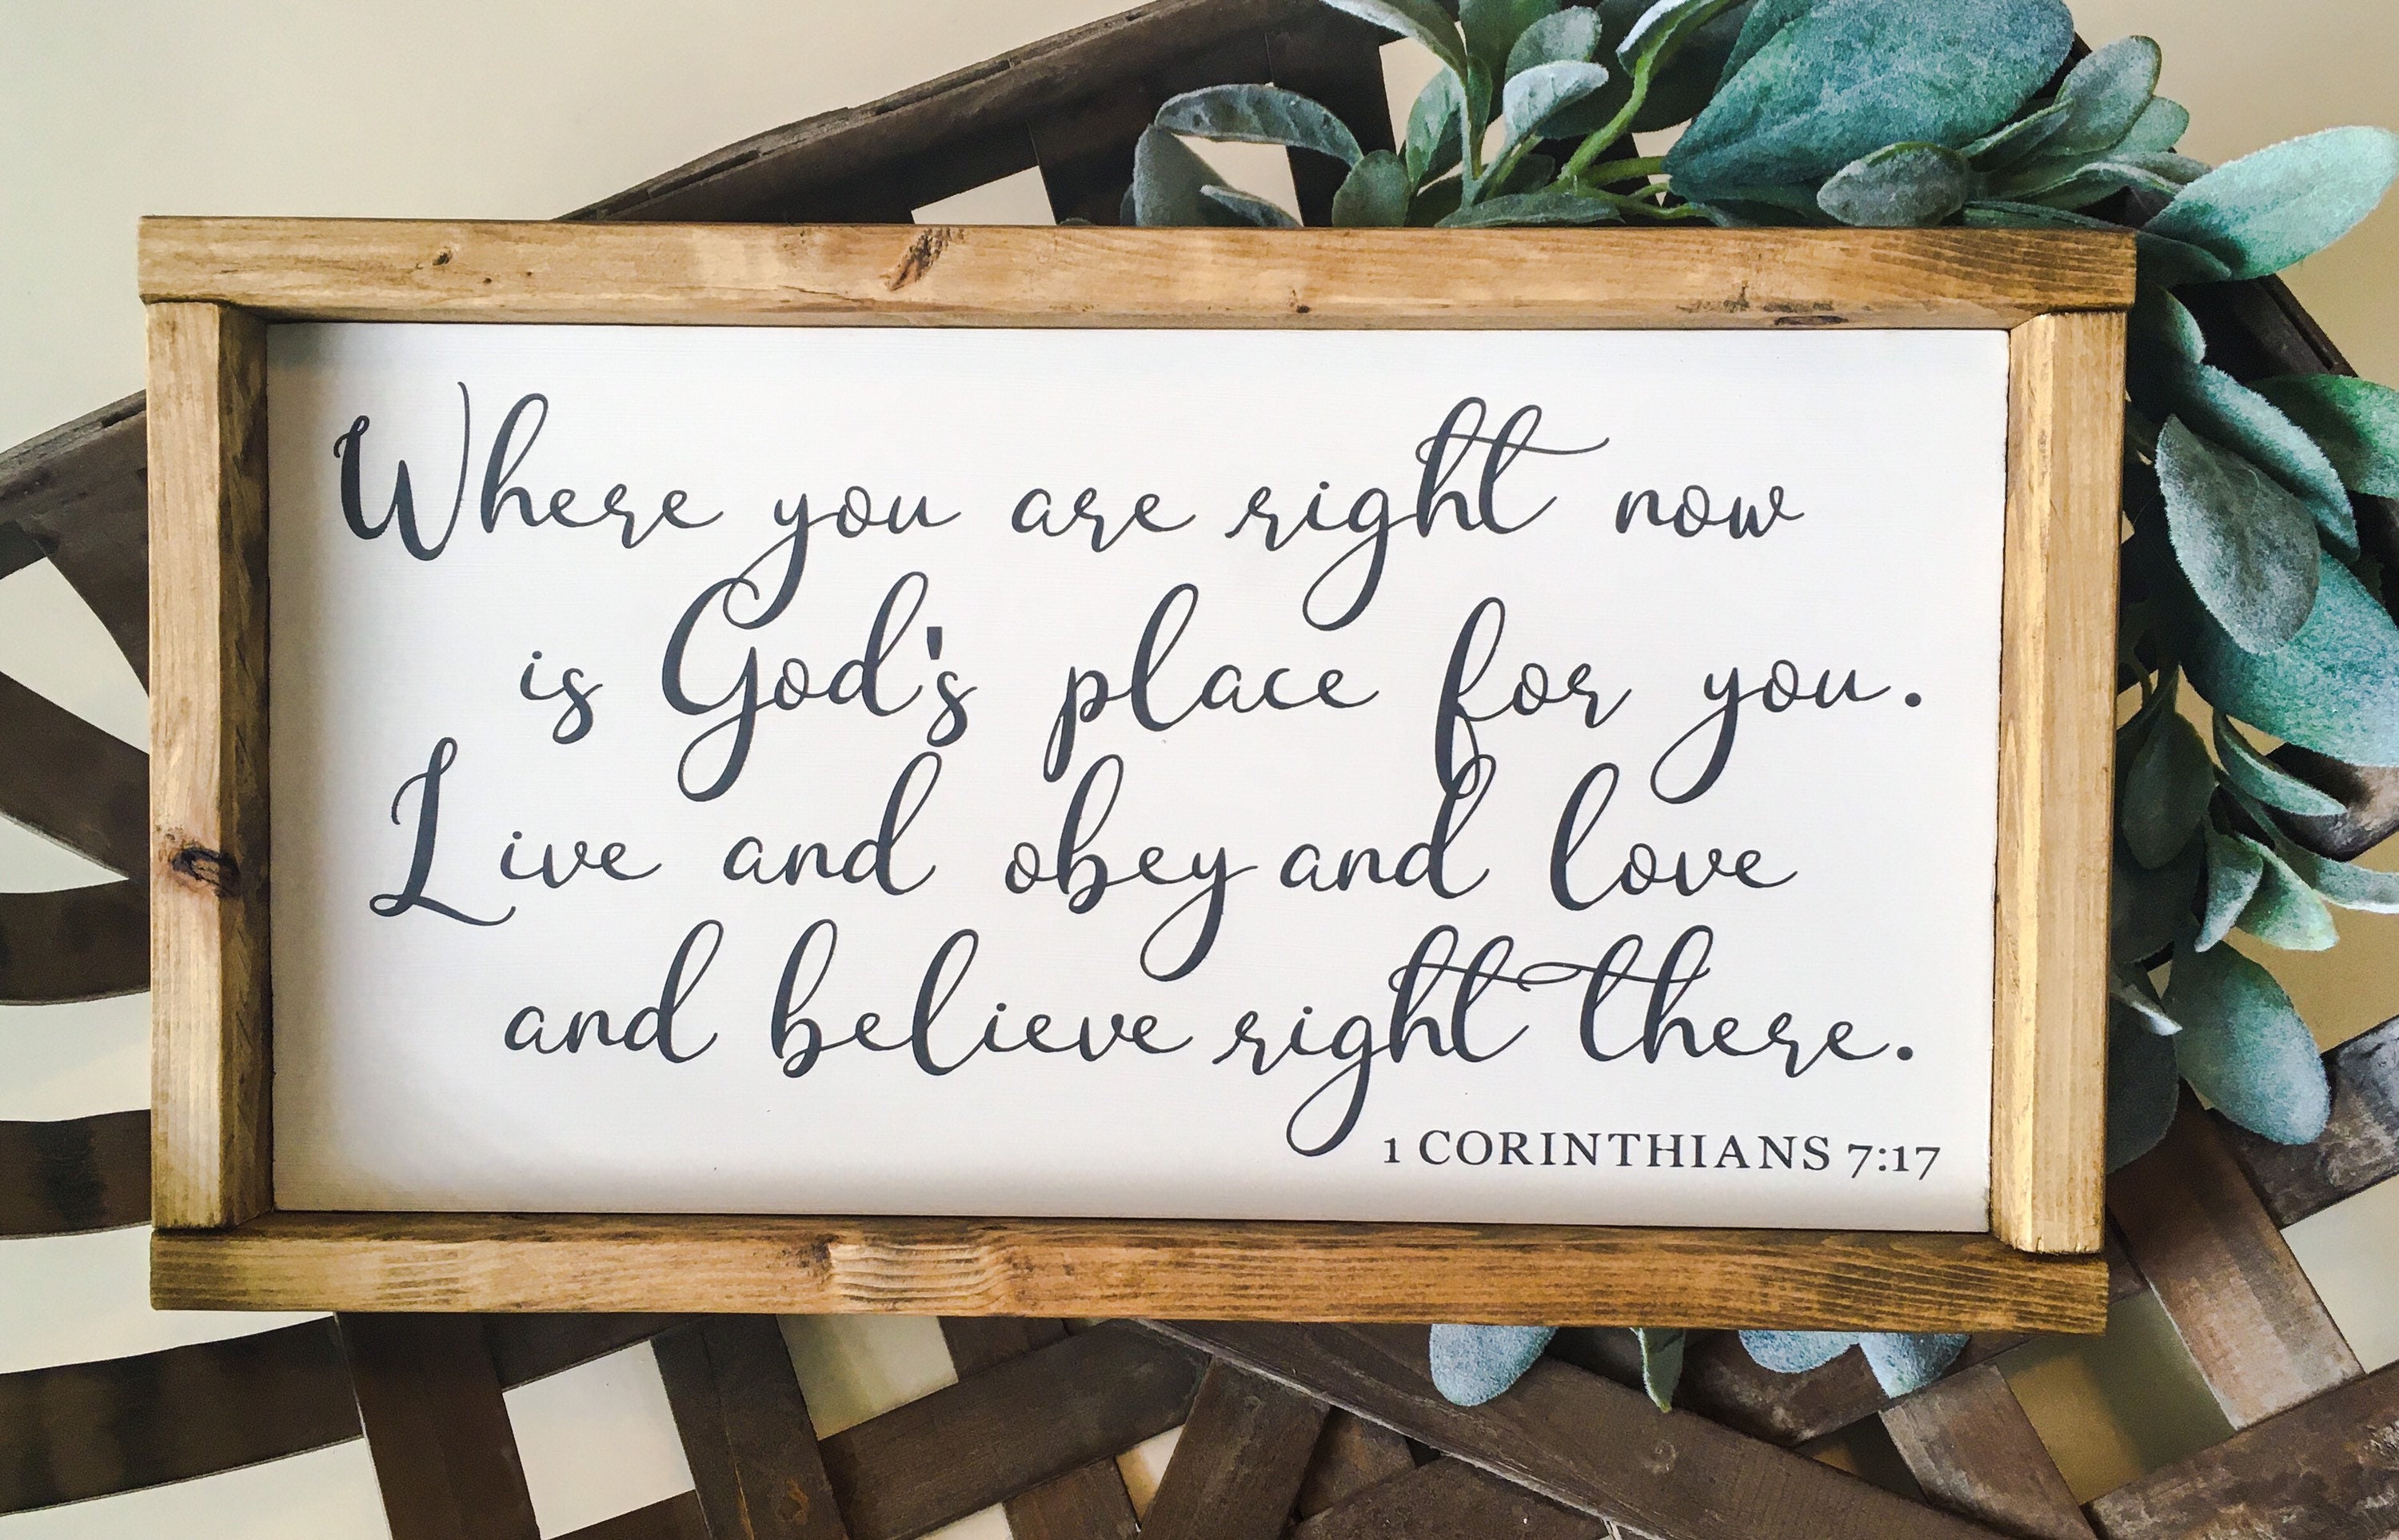 Where you are right now
is God's place for you.
Live and obey and love
and believe right there.
1 CORINTHIANS 7:17